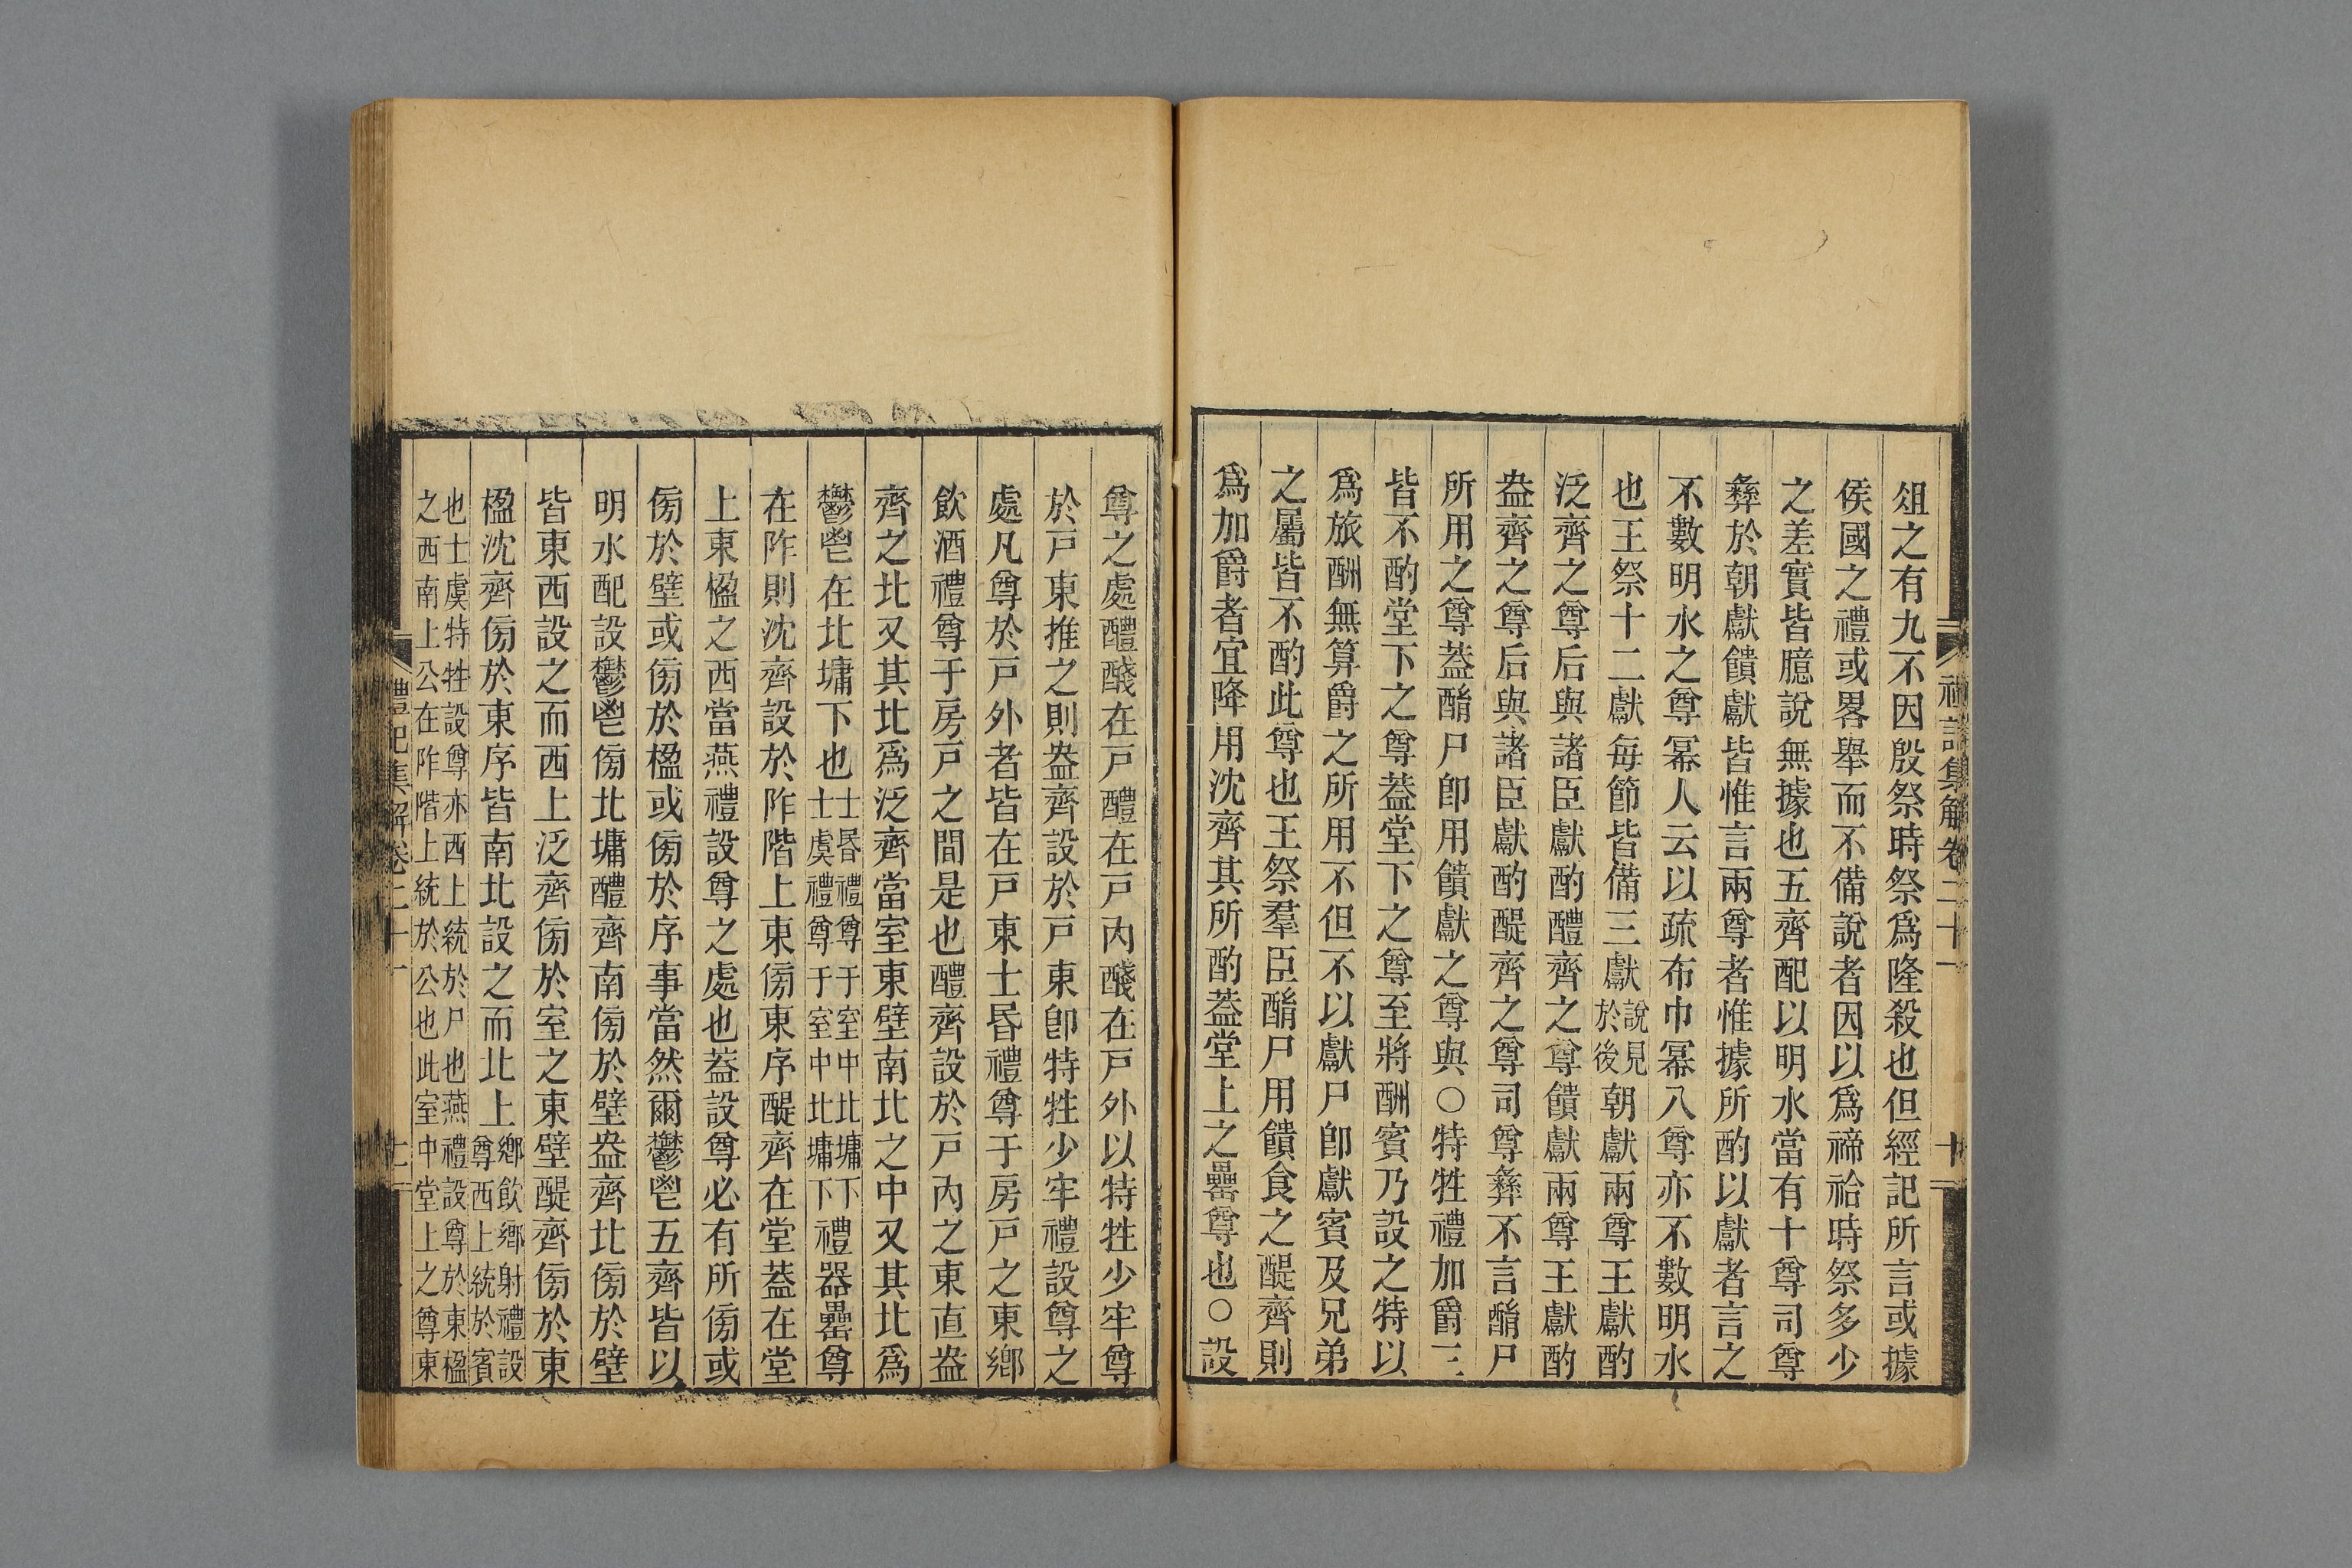 禮記集解卷二十一 十
俎之有九不因殷祭時祭爲隆殺也但經記所言或據
侯國之禮或畧舉而不備說者因以爲禘祫時祭多少
之差實皆臆說無據也五齊配以明水當有十尊司尊
彝於朝獻饋獻皆惟言兩尊者惟據所酌以獻者言之
不數明水之尊冪人云以疏布巾冪八尊亦不數明水
也王祭十二獻每節皆備三獻說見於後朝獻兩尊王獻酌
泛齊之尊后與諸臣獻酌醴齊之尊饋獻兩尊王獻酌
盎齊之尊后與諸臣獻酌醍齊之尊司尊彝不言酳尸
所用之尊蓋酳尸卽用饋獻之尊與○特牲禮加爵三
皆不酌堂下之尊蓋堂下之尊至將酬賓乃設之特以
爲旅酬無算爵之所用不但不以獻尸卽獻賓及兄弟
之屬皆不酌此尊也王祭羣臣酳尸用饋食之醍齊則
爲加爵者宜降用沈齊其所酌蓋堂上之罍尊也○設
尊之處醴醆在戶醴在戶內醆在戶外以特牲少牢尊
於戶東推之則盎齊設於戶東卽特牲少牢禮設尊之
處凡尊於戶外者皆在戶東士昏禮尊于房戶之東鄉
飲酒禮尊于房戶之間是也醴齊設於戶內之東直盎
齊之北又其北爲泛齊當室東壁南北之中又其北爲
鬱鬯在北墉下也士昏禮尊于室中北墉下士虞禮尊于室中北墉下禮器罍尊
在阼則沈齊設於阼階上東傍東序醍齊在堂蓋在堂
上東楹之西當燕禮設尊之處也蓋設尊必有所傍或
傍於壁或傍於楹或傍於序事當然爾鬱鬯五齊皆以
明水配設鬱鬯傍北墉醴齊南傍於壁盎齊北傍於壁
皆東西設之而西上泛齊傍於室之東壁醍齊傍於東
楹沈齊傍於東序皆南北設之而北上鄉飲鄉射禮設尊西上統於賓
也士虞特牲設尊亦西上統於尸也燕禮設尊於東楹之西南上公在阼階上統於公也此室中堂上之尊東
禮記集解卷二十一